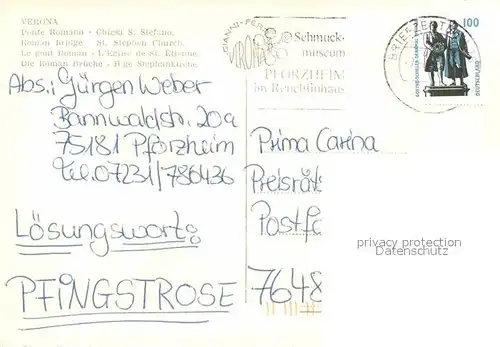 VERONA
Ponte Romano - Chiesa S. Stefano.
Roman Bridge - St. Stephen Church.
Le pont Romain - L'Eglise de St. Etienne.
Die Roman Brücke - Hge Stephankirche.
Schmuck-
museum
PFORZHEIM
im Reuchlinhaus
BRIEFZENTR
100
GOETHE-SCHILLER-DENKMAL
DEUTSCHLAND
Abs.: Jürgen Weber
Bannwaldstr. 20a
75181 Pforzheim
Tel. 07231/786436
Lösungswort:
PFINGSTROSE
Prima Carina
Preisräts
Postfa
7648
privacy protection
Datenschutz